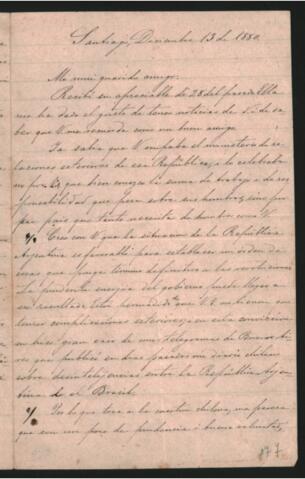 Santiago, Diciembre 13 de 1880.
Mi mui querido amigo:
Recibí su apreciable de 28 del pasado. Ella
me ha dado el gusto de tener noticias de V. i de sa-
ber que V. me recuerda como un buen amigo.
Ya sabia que V. ocupaba el ministerio de re-
laciones esteriores de esa República, i lo celebraba
no por V., que bien conozco la suma de trabajo i de res-
ponsabilidad que pesa sobre sus hombros, sino por
ese pais que tanto necesita de hombres como V.
Creo con V. que la situacion de la República
Arjentina es favorable para establecer un órden de
cosas que ponga término definitivo a las revoluciones.
La prudente enerjía del gobierno puede llegar a
ese resultado.
complicaciones esteriores, i en esta conviccion
no hice gran caso de unos telegramas de Buenos Ai-
res que publicó en dias pasados un diario chileno
sobre desintelijencias entre la República Arjen-
tina i el Brasil.
Por lo que toca a la cuestion chilena, me parece
que con un poco de prudencia i buena voluntad,
877